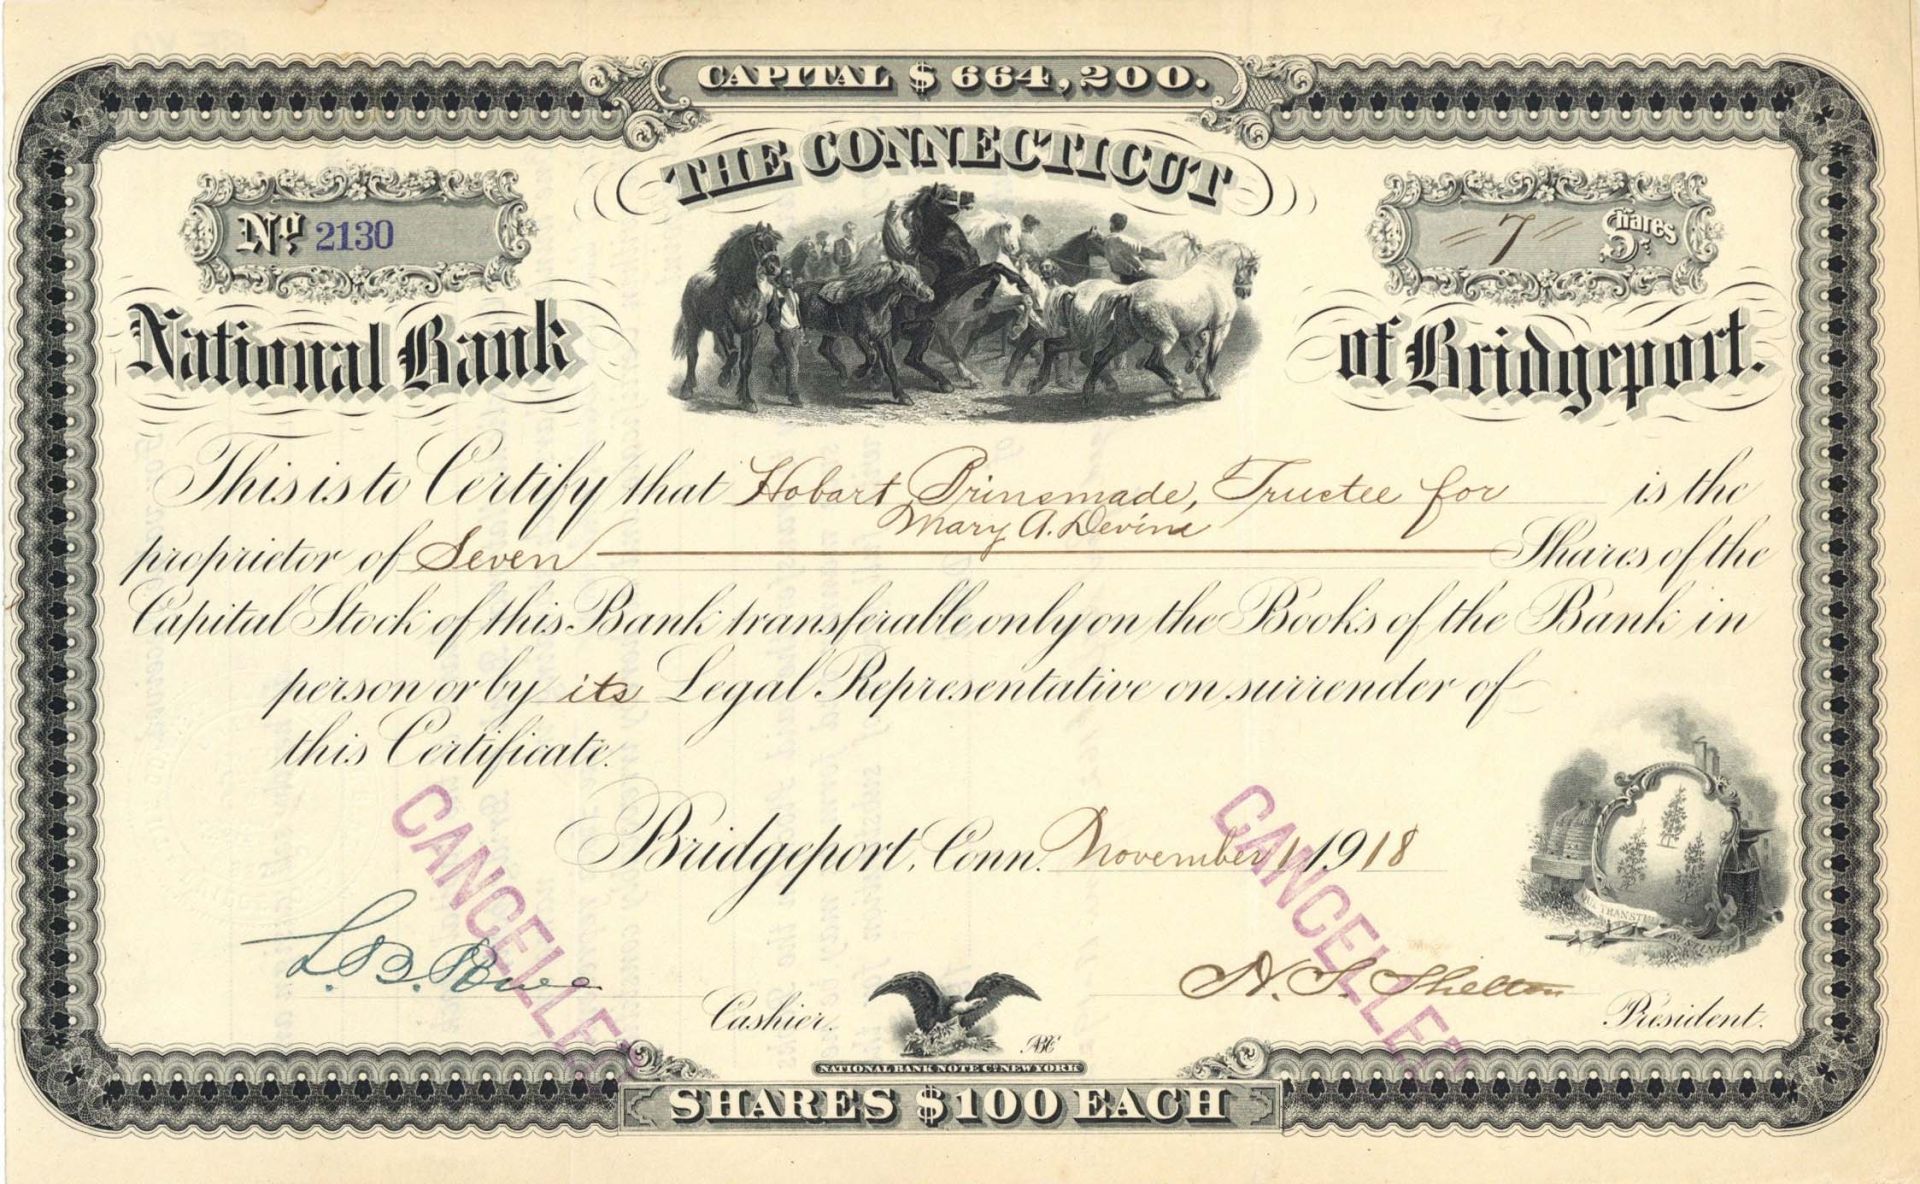 CAPITAL $664,200.
THE CONNECTICUT
Nº 2130
"7" Shares
National Bank of Bridgeport.
This is to Certify that Hobart Brinsmade, Trustee for is the
Mary A. Devine
proprietor of Seven Shares of the
Capital Stock of this Bank transferable only on the Books of the Bank in
person or by its Legal Representative on surrender of
this Certificate.
Bridgeport, Conn. November 1, 1918
CANCELLED
CANCELLED
QUI TRANSTULIT SUSTINET
L. B. Powe Cashier.
H. S. Shelton President.
ABC
NATIONAL BANK NOTE Cº NEW YORK
SHARES $100 EACH